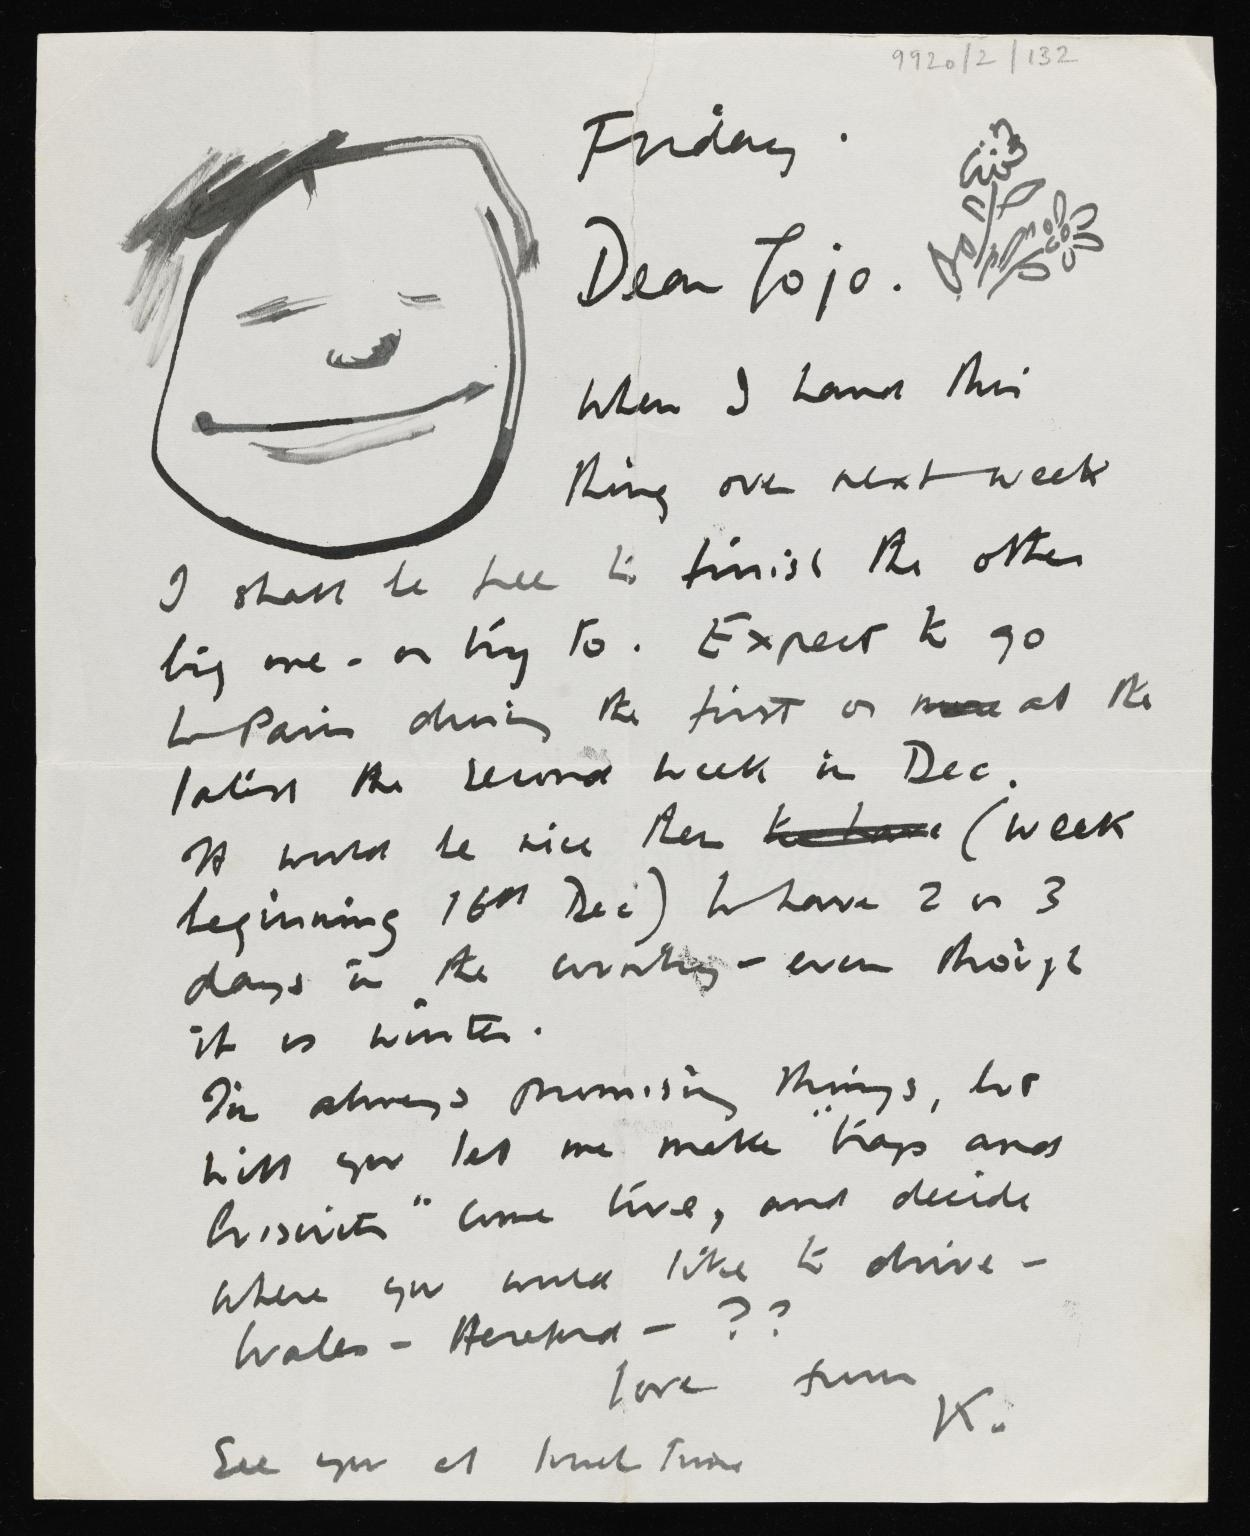 9920/2/132
Friday.
Dear Jojo.
When I hand this
thing over next week
I shall be free to finish the other
big one - or try to. Expect to go
to Paris during the first or more at the
latest the second week in Dec.
It would be nice then to have (week
beginning 16th Dec) to have 2 or 3
days in the country - even though
it is winter.
I'm always promising things, but
will you let me make "trays and
biscuits" come true, and decide
where you would like to drive -
Wales - Hereford - ??
love from
K.
See you at lunch time